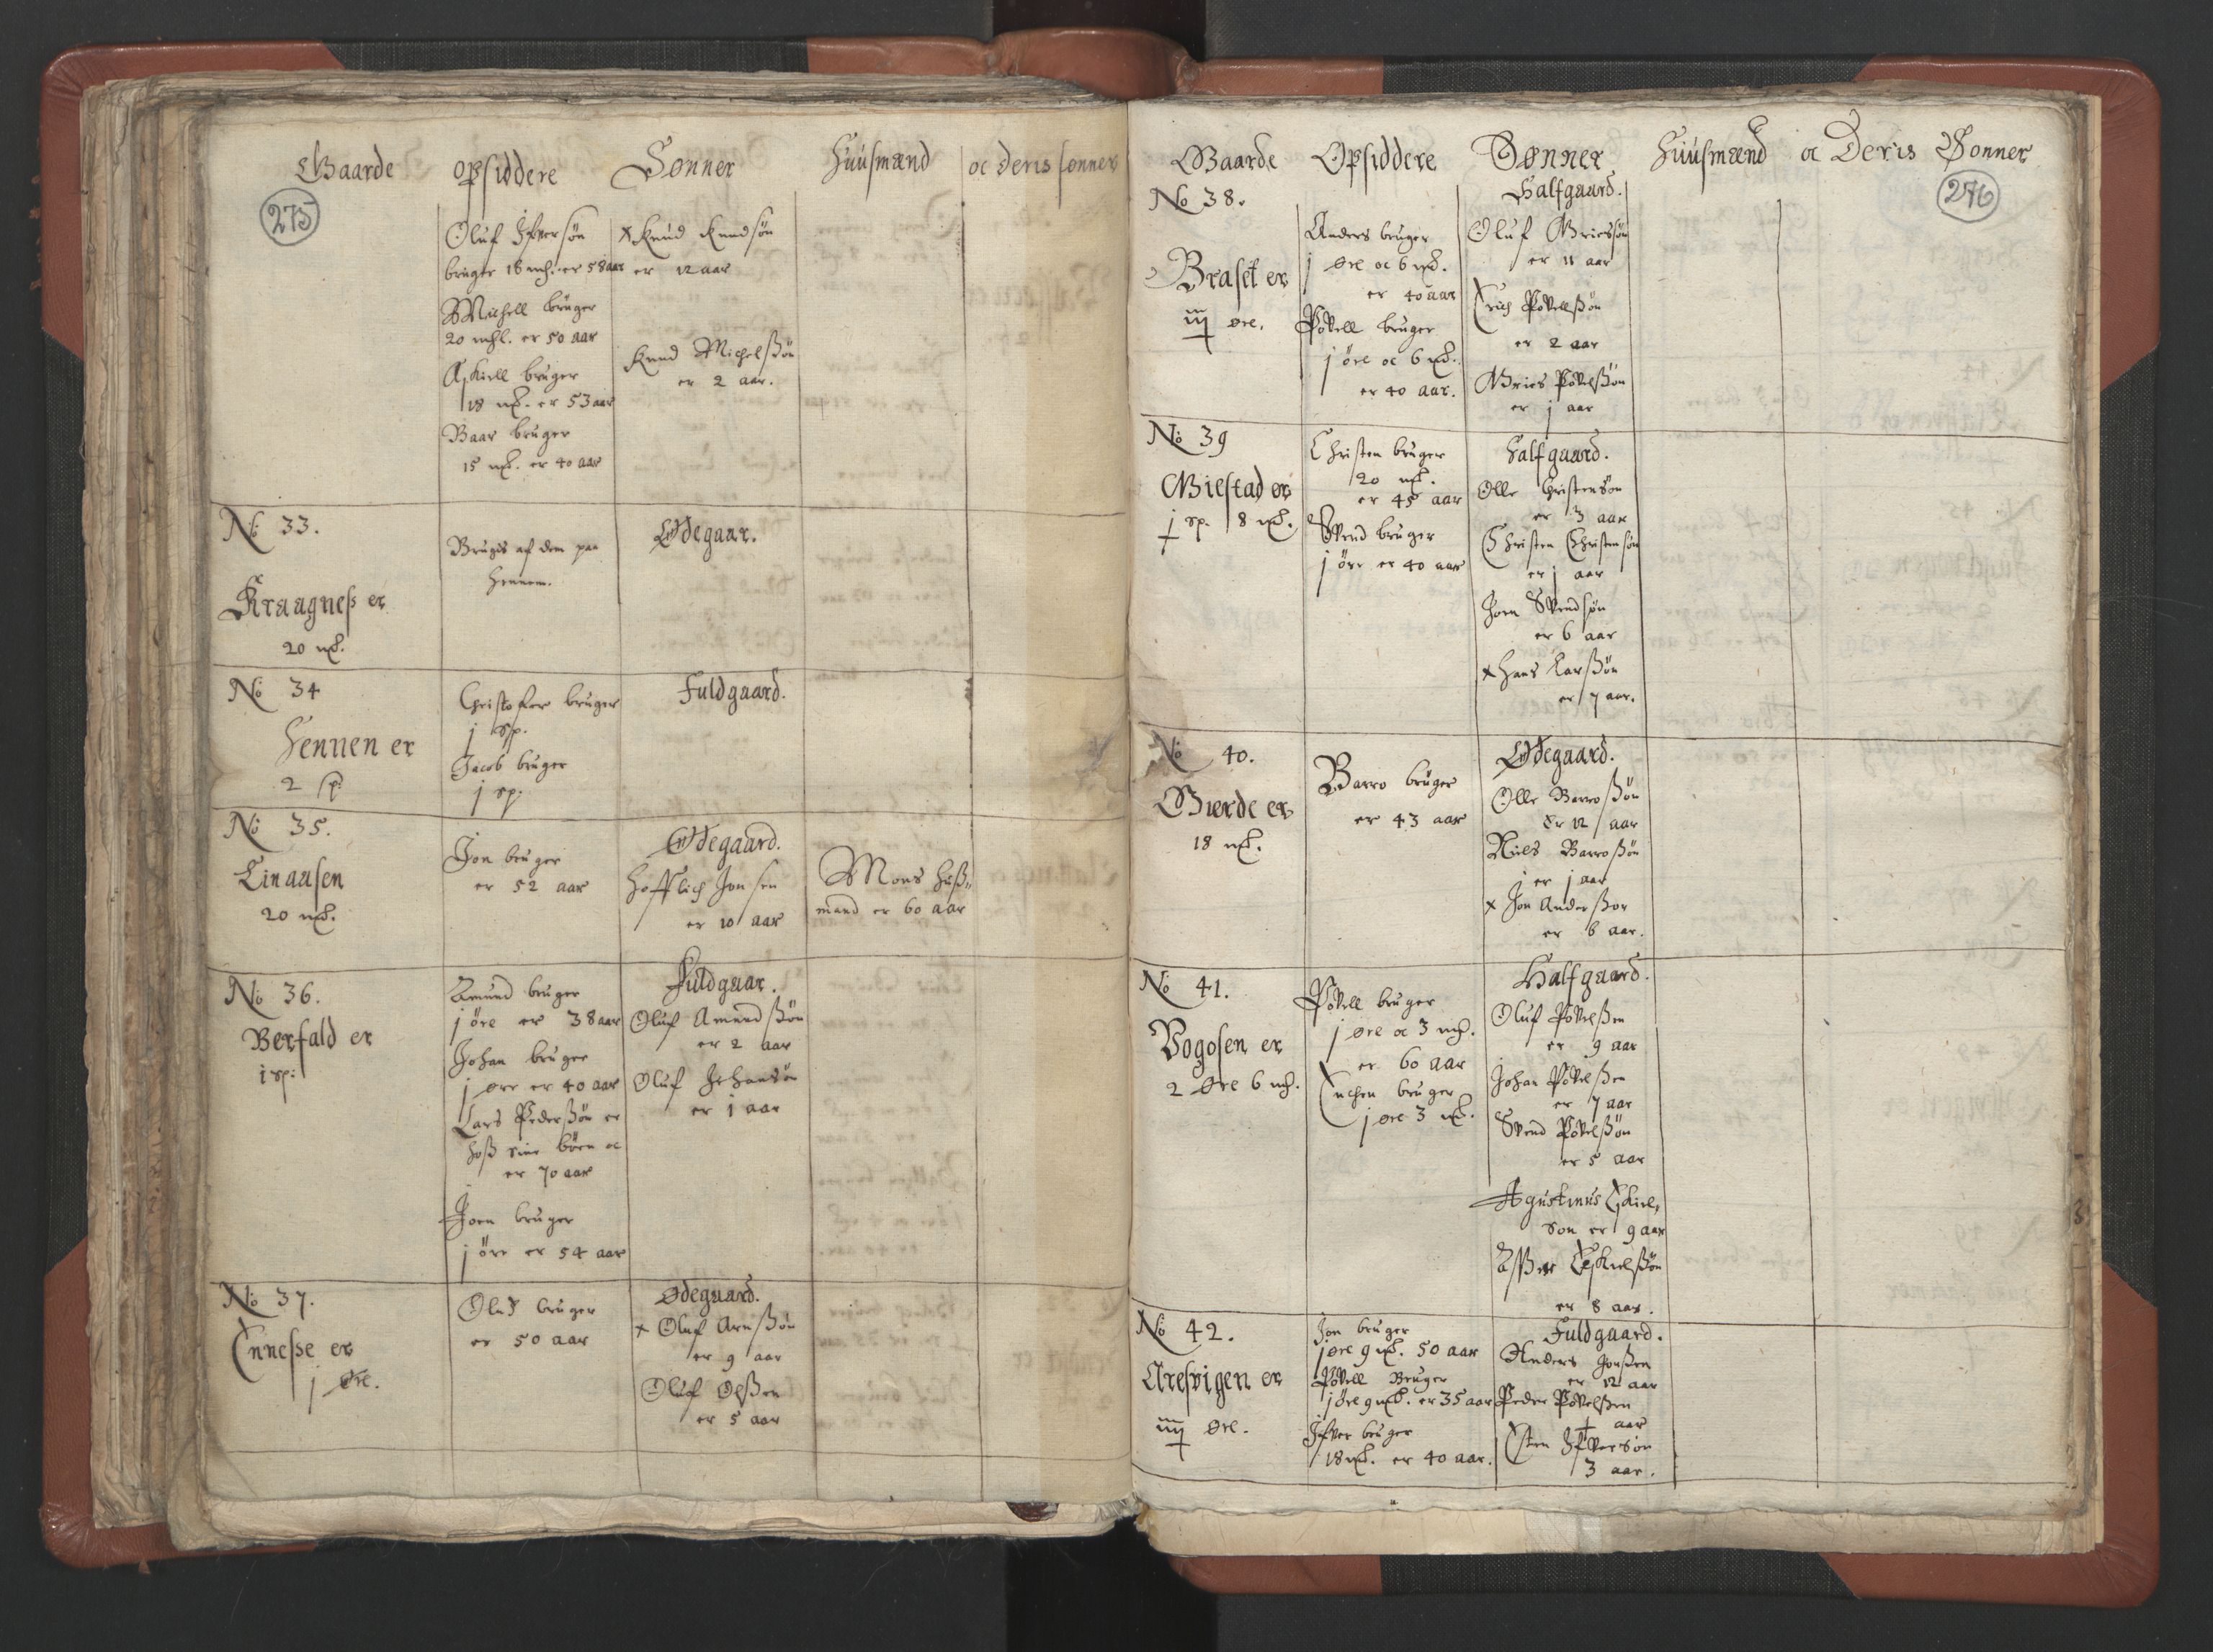 Gaarde opsiddere Sønner Huusmænd oc deris sønner
275
Oluf Ifversøn
bruger 18 mkl. er 58 aar
Michell bruger
20 mkl. er 50 aar
Askiell bruger
18 mkl. er 53 aar
Baar bruger
15 mkl. er 40 aar
x Knud Knudsøn
er 12 aar
Knud Michelsøn
er 2 aar.
No 33.
Kraagness er
20 mkl.
Bruges af dem paa
Hennem.
Ødegaar.
No 34
Hennen er
2 sp.
Christofer bruger
j sp.
Jacob bruger
j sp.
Fuldgaard.
No 35.
Linausen
20 mkl.
Jon bruger
er 52 aar
Ødegaard.
Hofflich Jonsen
er 10 aar
Mons Huß„
mand er 60 aar
No 36.
Berfald er
j sp:
Amund bruger
j øre er 38 aar
Johan bruger
j øre er 40 aar
Lars Pederßøn er
hoß sine børn oc
er 70 aar
Joen bruger
j øre er 54 aar
Fuldgaar.
Oluf Amundßøn
er 2 aar
Oluf Johansøn
er 1 aar
No 37.
Enneße er
j Øre.
Oluf bruger
er 50 aar
Ødegaard.
x Oluf Arnßøn
er 9 aar
Oluf Olßen
er 5 aar
Gaarde Opsiddere Sønner Huusmænd oc Deris Sønner
276
No 38.
Braset er
iij øre.
Anders bruger
j øre oc 6 mkl.
er 40 aar
Povell bruger
j øre oc 6 mkl.
er 40 aar.
Halfgaard.
Oluf Griessøn
er 11 aar
Erich Povellßøn
er 2 aar
Gries Povelßøn
er j aar
No 39
Gilstad er
j sp. 8 mkl.
Christen bruger
20 mkl.
er 45 aar
Svend bruger
j øre er 40 aar
Halfgaard.
Olle Christensøn
er 3 aar
Christen Christensøn
er j aar
Joen Svendsøn
er 6 aar
x Hans Larßøn
er 7 aar.
No 40.
Giærde er
18 mkl.
Barro bruger
er 43 aar
Ødegaard.
Olle Barroßøn
Er 12 aar
Niels Barroßøn
er j aar
x Jon Anderßor
er 6 aar.
No 41.
Vogosen er
2 Øre 6 mkl.
Povell bruger
j øre oc 3 mkl.
er 60 aar
Enchen bruger
j øre 3 mkl.
Halfgaard.
Oluf Povelßen
er 9 aar
Johan Povelßen
er 7 aar
Svend Povelßøn
er 5 aar
Agustinus Eskiel,
son er 9 aar
Aßer Eskielßøn
er 8 aar.
No 42.
Aresvigen er
iiij øre.
Jon bruger
j øre 9 mkl. 50 aar
Povell Bruger
j øre 9 mkl. er 35 aar
Ifver bruger
18 mkl. er 40 aar.
Fuldgaard.
Anders Jonßen
er 12 aar
Peder Povelßen
aar
Sten Ifversøn
3 aar.